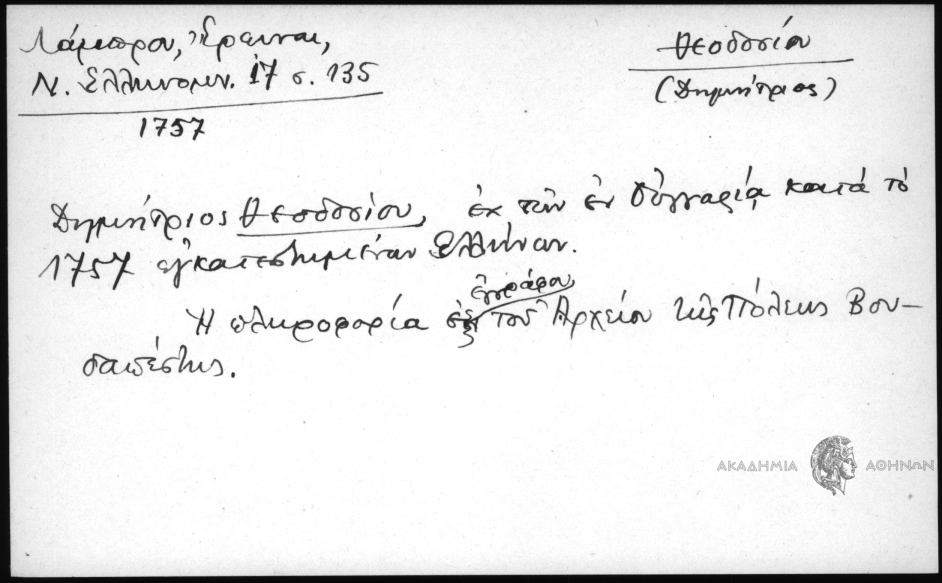 Λάμπρου, Ἔρευναι,
Ν. Ἑλληνομν. 17 σ. 135
1757
Θεοδοσίου
(Δημήτριος)
Δημήτριος Θεοδοσίου, ἐκ τῶν ἐν Οὑγγαρίᾳ κατά τὸ
1757 ἐγκατεστημένων Ἑλλήνων.
ἐγγράφου
Ἡ πληροφορία ἐξ τοῦ Ἀρχείου τῆς Πόλεως Βου-
δαπέστης.
ΑΚΑΔΗΜΙΑ ΑΘΗΝΩΝ